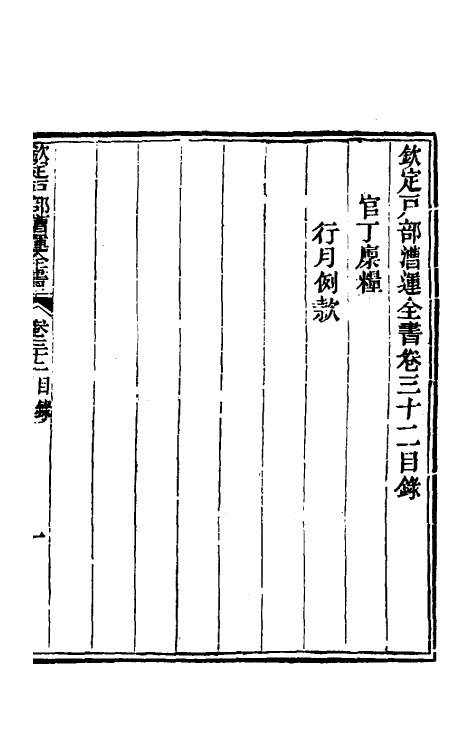 欽定戶部漕運全書卷三十二目錄
官丁廩糧
行月例款
欽定戶部漕運全書
卷三十二目錄
一